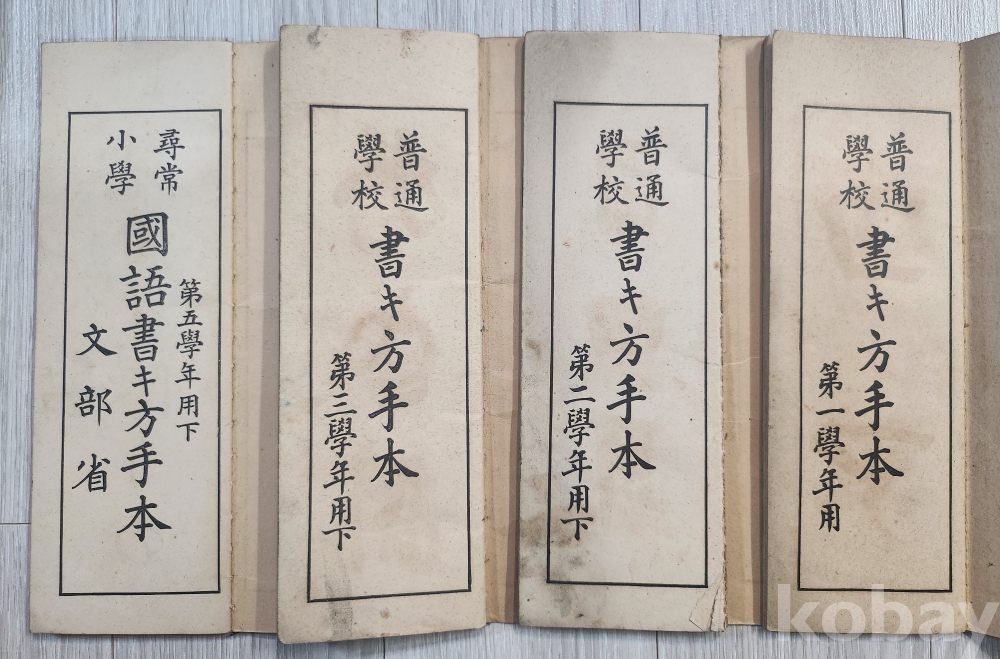 尋常
小學
國語書キ方手本
第五學年用下
文部省
普通
學校
書キ方手本
第三學年用下
普通
學校
書キ方手本
第二學年用下
普通
學校
書キ方手本
第一學年用
kobay